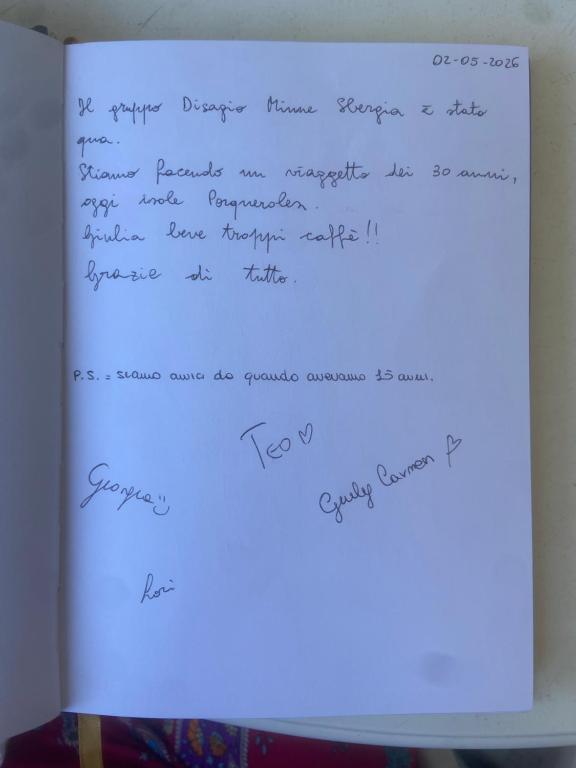 02-05-2026
Il gruppo Disagio Minne Sbergia è stato
qua.
Stiamo facendo un viaggetto dei 30 anni,
oggi isole Porqueroles.
Giulia beve troppi caffè!!
Grazie di tutto.
P.S. = siamo amici da quando avevamo 15 anni.
TEO ♡
Giorgia :)
Giuly Carmen ♡
Lori